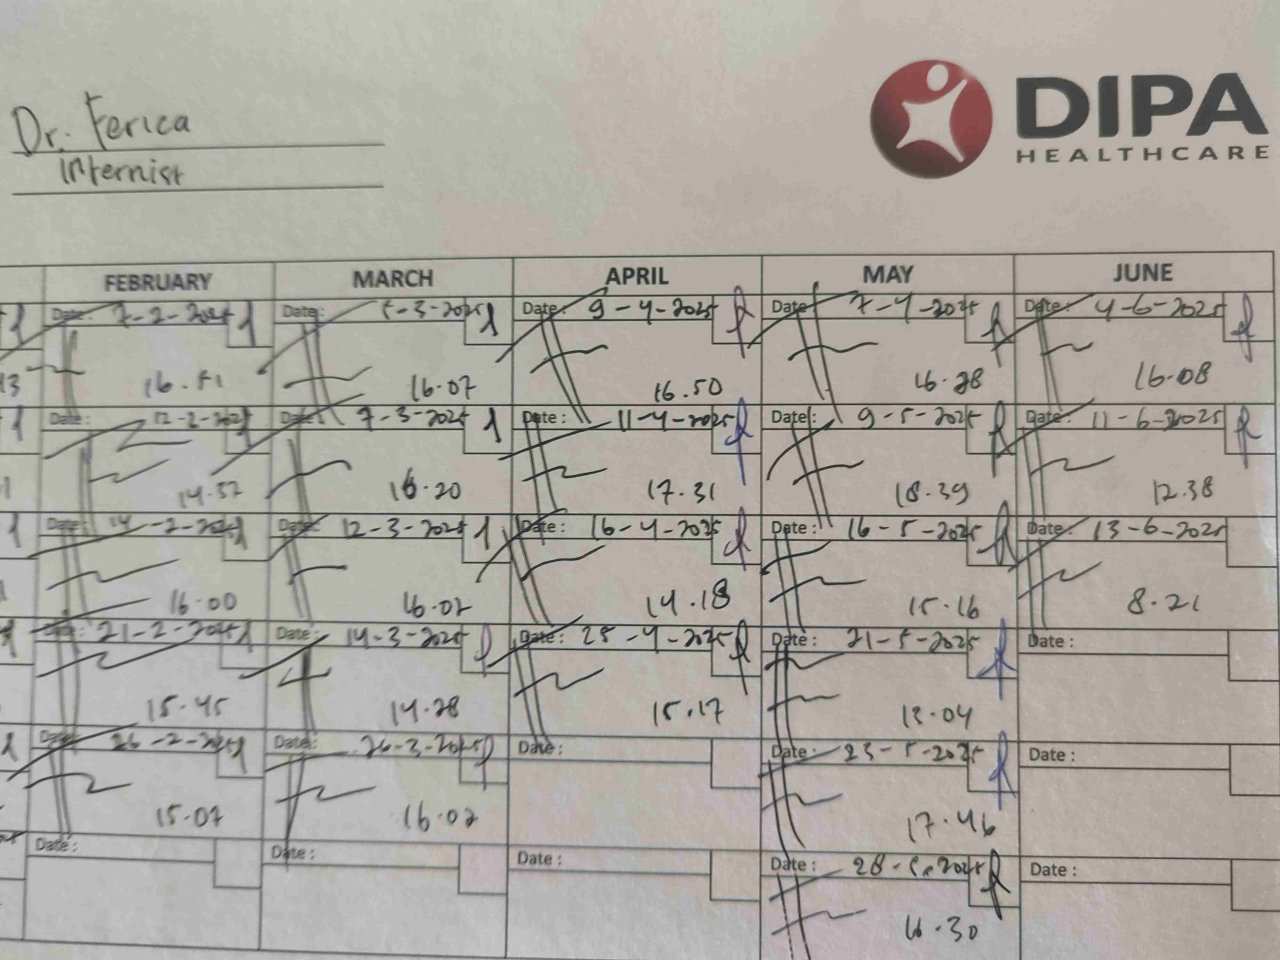 Dr. Ferica
Internist
DIPA
HEALTHCARE
FEBRUARY MARCH APRIL MAY JUNE
Date: 7-2-2025 Date: 5-3-2025 Date: 9-4-2025 Date: 7-4-2025 Date: 4-6-2025
16.51 16.07 16.50 16.28 16.08
Date: 12-2-2025 Date: 7-3-2025 Date: 11-4-2025 Date: 9-5-2025 Date: 11-6-2025
14.57 16.20 17.31 18.39 12.38
Date: 14-2-2025 Date: 12-3-2025 Date: 16-4-2025 Date: 16-5-2025 Date: 13-6-2025
16.00 16.02 14.18 15.16 8.21
21-2-2025 Date: 14-3-2025 Date: 25-4-2025 Date: 21-5-2025 Date:
15.45 14.28 15.17 12.04
Date: 26-2-2025 Date: 26-3-2025 Date: Date: 23-5-2025 Date:
15.07 16.02 17.46
Date: Date: Date: Date: 28-5-2025 Date:
16.30